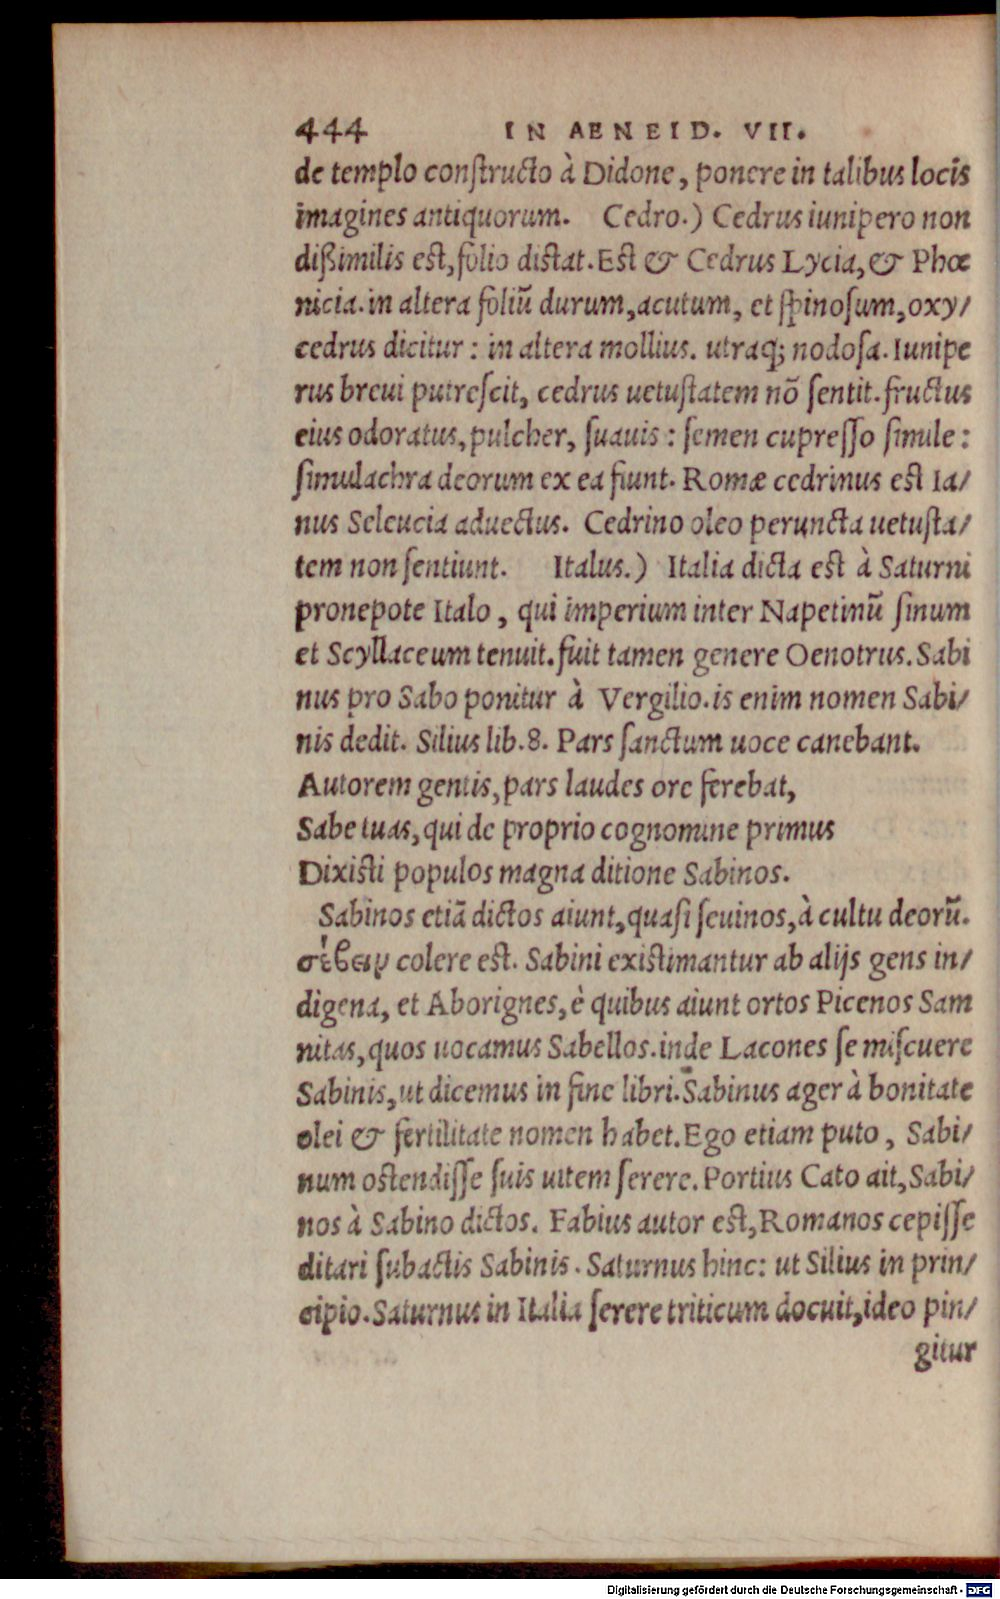 444 IN AENEID. VII.
de templo conſtructo à Didone, ponere in talibus locis
imagines antiquorum. Cedro.) Cedrus iunipero non
dißimilis est, folio distat. Est & Cedrus Lycia, & Phœ
nicia. in altera foliũ durum, acutum, et ſpinoſum, oxy/
cedrus dicitur: in altera mollius. utraq; nodoſa. Iunipe
rus breui putreſcit, cedrus uetuſtatem nõ ſentit. fructus
eius odoratus, pulcher, ſuauis: ſemen cupreſſo ſimile:
ſimulachra deorum ex ea fiunt. Romæ cedrinus est Ia/
nus Seleucia aduectus. Cedrino oleo peruncta uetuſta/
tem non ſentiunt. Italus.) Italia dicta est à Saturni
pronepote Italo, qui imperium inter Napetinũ ſinum
et Scyllaceum tenuit. fuit tamen genere Oenotrus. Sabi
nus pro Sabo ponitur à Vergilio. is enim nomen Sabi/
nis dedit. Silius lib. 8. Pars ſanctum uoce canebant.
Autorem gentis, pars laudes ore ferebat,
Sabe tuas, qui de proprio cognomine primus
Dixisti populos magna ditione Sabinos.
Sabinos etiã dictos aiunt, quaſi ſeuinos, à cultu deorũ.
σέβειν colere est. Sabini existimantur ab alijs gens in/
digena, et Aborignes, è quibus aiunt ortos Picenos Sam
nitas, quos uocamus Sabellos. inde Lacones ſe miſcuere
Sabinis, ut dicemus in fine libri. Sabinus ager à bonitate
olei & fertilitate nomen habet. Ego etiam puto, Sabi/
num ostendiſſe ſuis uitem ſerere. Portius Cato ait, Sabi/
nos à Sabino dictos. Fabius autor est, Romanos cepiſſe
ditari ſubactis Sabinis. Saturnus hinc: ut Silius in prin/
cipio. Saturnus in Italia ſerere triticum docuit, ideo pin/
gitur
Digitalisierung gefördert durch die Deutsche Forschungsgemeinschaft - DFG